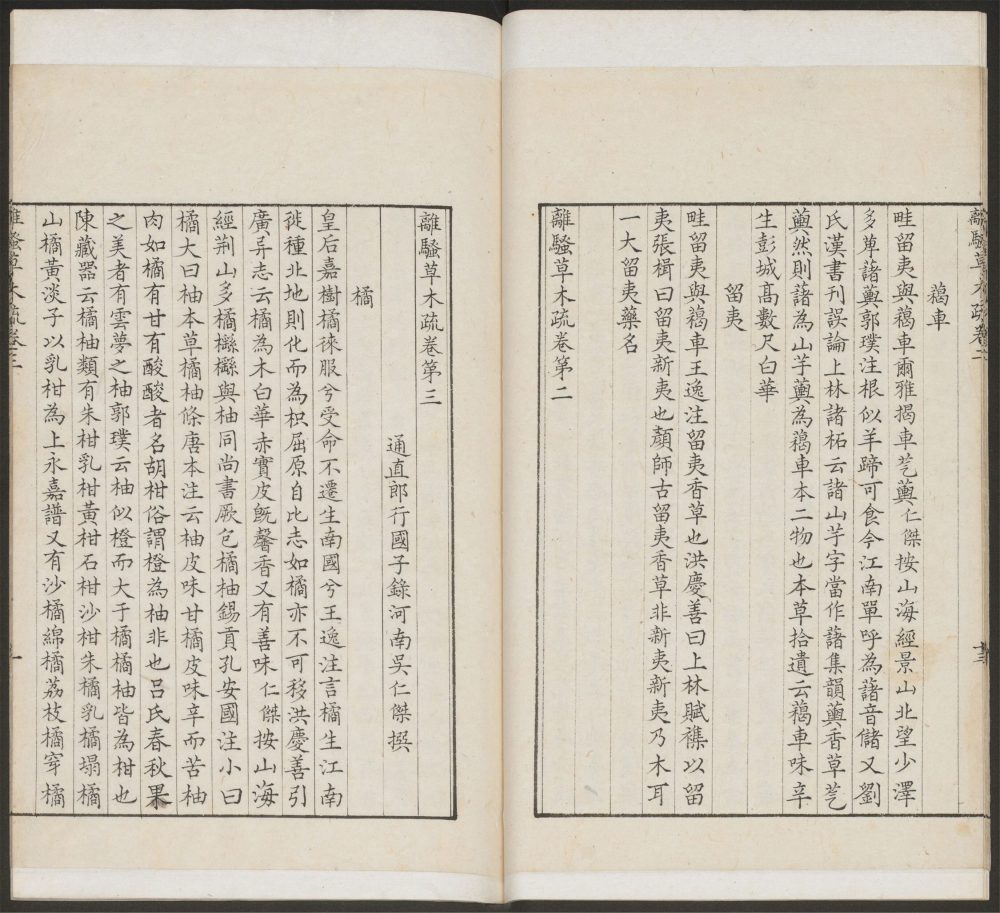 離騷草木疏卷二
藒車
畦留夷與藒車爾雅揭車芞藇仁傑按山海經景山北望少澤
多草藷藇郭璞注根似羊蹄可食今江南單呼為藷音儲又劉
氏漢書刊誤論上林諸柘云諸山芋字當作藷集韻藇香草芞
藇然則藷為山芋藇為藒車本二物也本草拾遺云藒車味辛
生彭城高數尺白華
留夷
畦留夷與藒車王逸注留夷香草也洪慶善曰上林賦襍以留
夷張楫曰留夷新夷也顏師古留夷香草非新夷新夷乃木耳
一大留夷藥名
離騷草木疏卷第二
離騷草木疏卷第三
通直郎行國子錄河南吳仁傑撰
橘
皇后嘉樹橘徠服兮受命不遷生南國兮王逸注言橘生江南
徙種北地則化而為枳屈原自比志如橘亦不可移洪慶善引
廣异志云橘為木白華赤實皮既馨香又有善味仁傑按山海
經荆山多橘櫾櫾與柚同尚書厥包橘柚錫貢孔安國注小曰
橘大曰柚本草橘柚條唐本注云柚皮味甘橘皮味辛而苦柚
肉如橘有甘有酸酸者名胡柑俗謂橙為柚非也呂氏春秋果
之美者有雲夢之柚郭璞云柚似橙而大于橘橘柚皆為柑也
陳藏器云橘柚類有朱柑乳柑黃柑石柑沙柑朱橘乳橘塌橘
山橘黃淡子以乳柑為上永嘉譜又有沙橘綿橘荔枝橘穿橘
離騷草木疏卷三
一